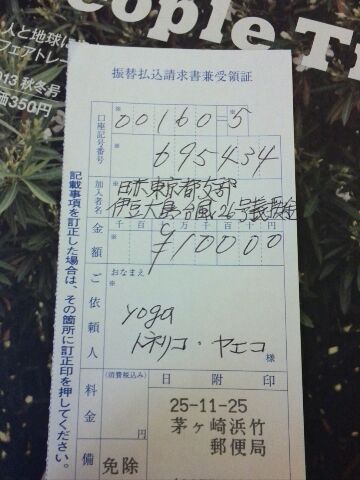 eople T
人と地球に
フェアトレー
013 秋冬号
価350円
振替払込請求書兼受領証
口座記号番号
00160=5
695434
加入者名
日本東京都支部
伊豆大島台風26号義援金
金額
千百十万千百十円
¥10000
ご依頼人
おなまえ
yoga
トネリコ・ヤエコ
様
料金
(消費税込み)
円
日附印
25-11-25
茅ヶ崎浜竹
郵便局
備
免除
記載事項を訂正した場合は、その箇所に訂正印を押してください。